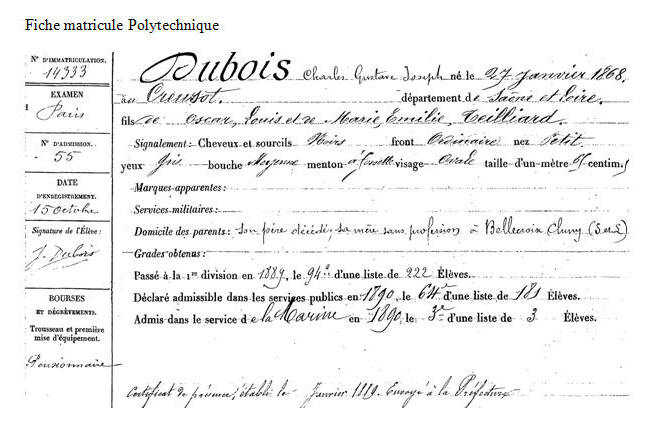 Fiche matricule Polytechnique
N° D'IMMATRICULATION.
14333
EXAMEN
1 Paris
N° D'ADMISSION.
55
DATE
D'ENREGISTREMENT.
15 Octobre
Signature de l'Élève:
J. Dubois
BOURSES
ET DÉGRÈVEMENTS.
Trousseau et première
mise d'équipement.
Pensionnaire
DUBOIS Charles Gustave Joseph né le 27 Janvier 1868.
au Creusot. département de Saône et Loire.
fils de Oscar, Louis et de Marie, Emilie, Teilliard.
Signalement: Cheveux et sourcils Noirs front Ordinaire nez Petit
yeux Gris bouche Moyenne menton à fossette visage Ovale taille d'un mètre centim.
Marques apparentes:
Services militaires:
Domicile des parents: Son père décédé, sa mère sans profession à Bellecroix Cluny (S et L)
Grades obtenus:
Passé à la 1re division en 1889, le 94e d'une liste de 222 Élèves.
Déclaré admissible dans les services publics en 1890, le 64e d'une liste de 181 Élèves.
Admis dans le service de la Marine en 1890, le 3e d'une liste de 3 Élèves.
Certificat de présence, établi le Janvier 1889. Envoyé à la Préfecture